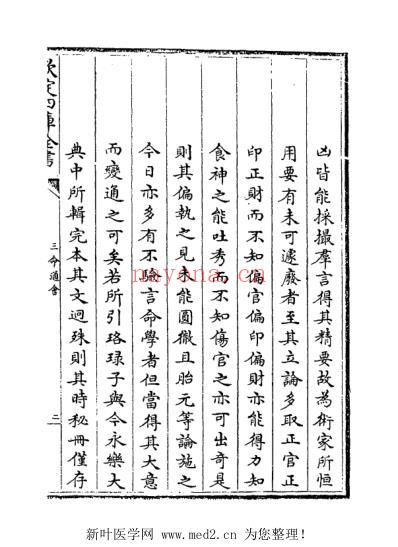 凶皆能採撮羣言得其精要故為術家所恒
用要有未可遽廢者至其立論多取正官正
印正財而不知偏官偏印偏財亦能得力知
食神之能吐秀而不知傷官之亦可出奇是
則其偏執之見未能圓徹且胎元等論施之
今日亦多有不驗言命學者但當得其大意
而變通之可矣若所引珞琭子與今永樂大
典中所輯完本其文迥殊則其時秘冊僅存
欽定四庫全書
三命通會
二
nayona.cn
新叶医学网 www.med2.cn 为您整理!